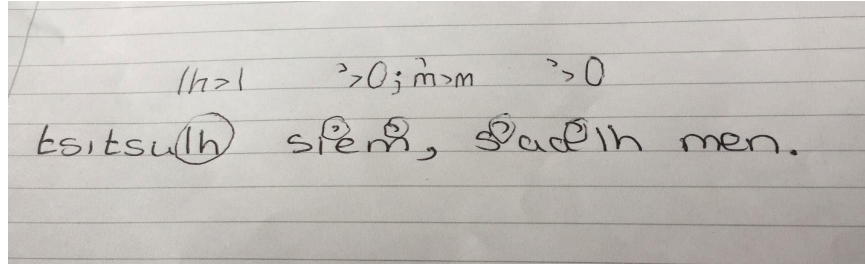 lh>l ʼ>0; m̓>m ʼ>0
tsitsulh siʼem̓, sʼaaʼlh men.